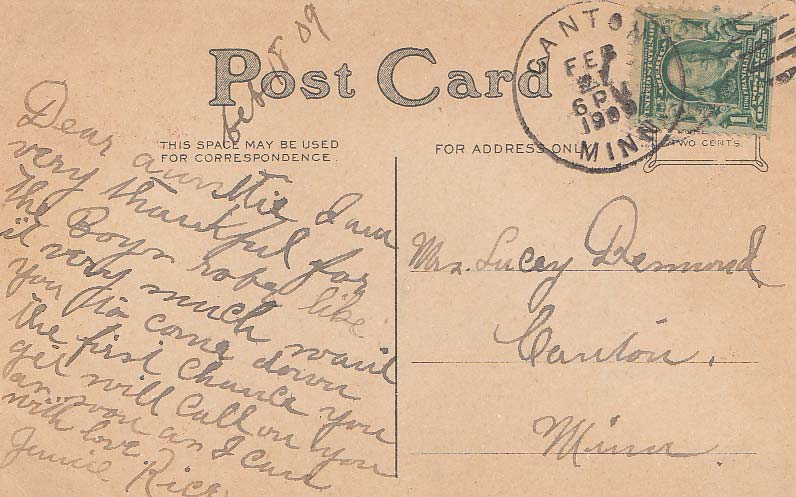 Post Card
Feb 18 09
THIS SPACE MAY BE USED
FOR CORRESPONDENCE.
FOR ADDRESS ONLY
CANTON
FEB
6 PM
1909
MINN
TWO CENTS.
Dear auntie I am
very thankful for
the Boys robe like
it very much want
you to come down
the first chance you
get will call on you
as soon as I can
with love
Jennie Rice
Mrs. Lucey Desmond
Canton,
Minn.